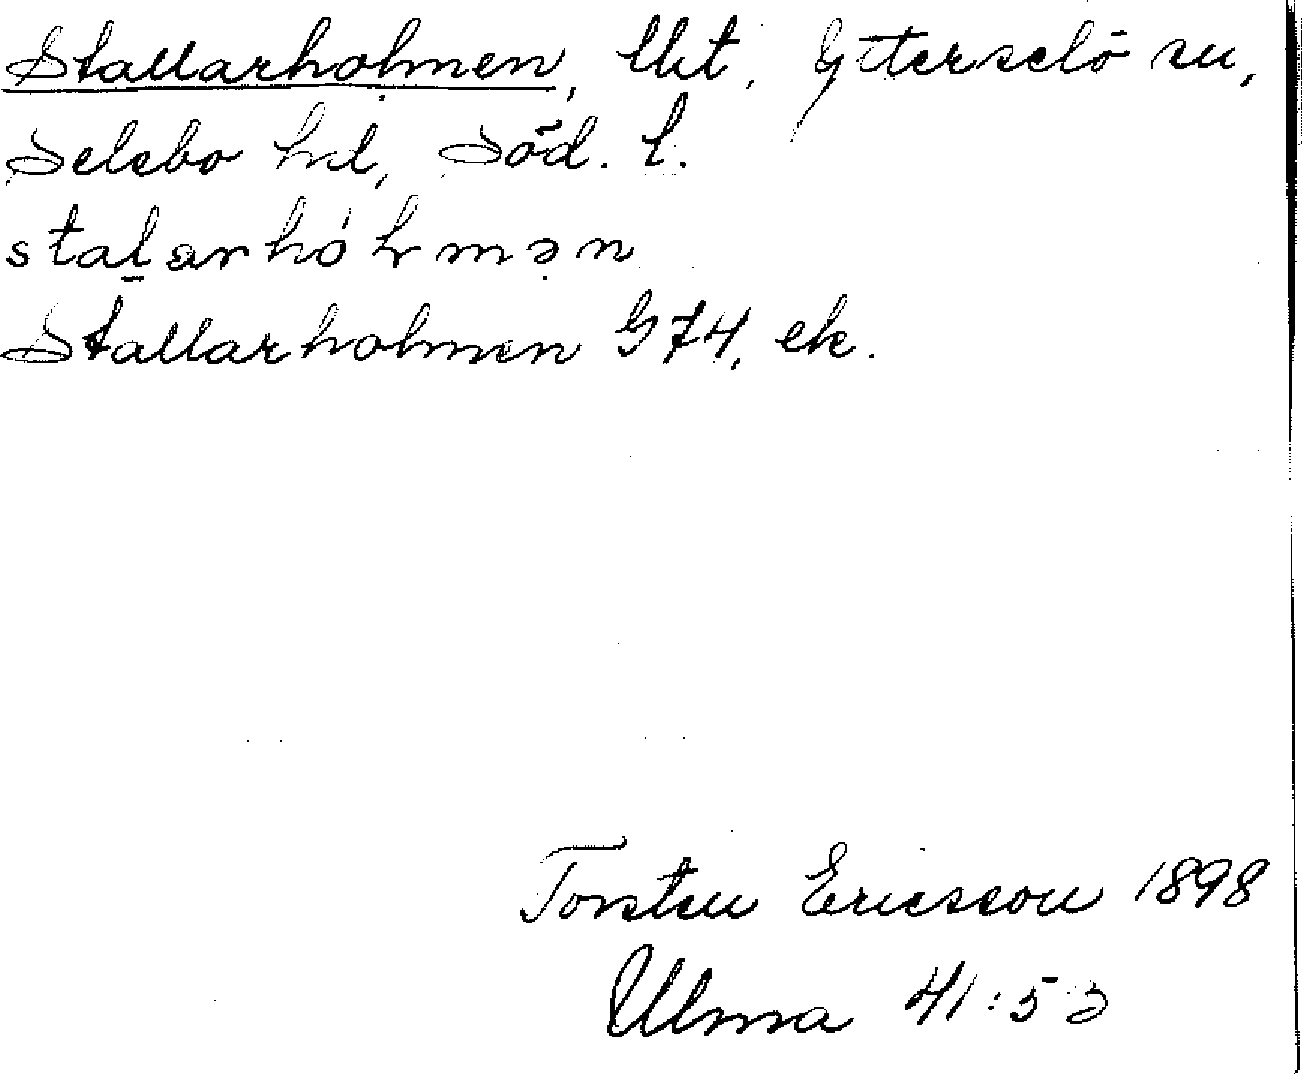 Stallarholmen, lht, Ytterselö sn,
Selebo hd, Söd. l.
stalarhólmən
Stallarholmen G 74, ek.
Torsten Ericsson 1898
Ulma 41:53